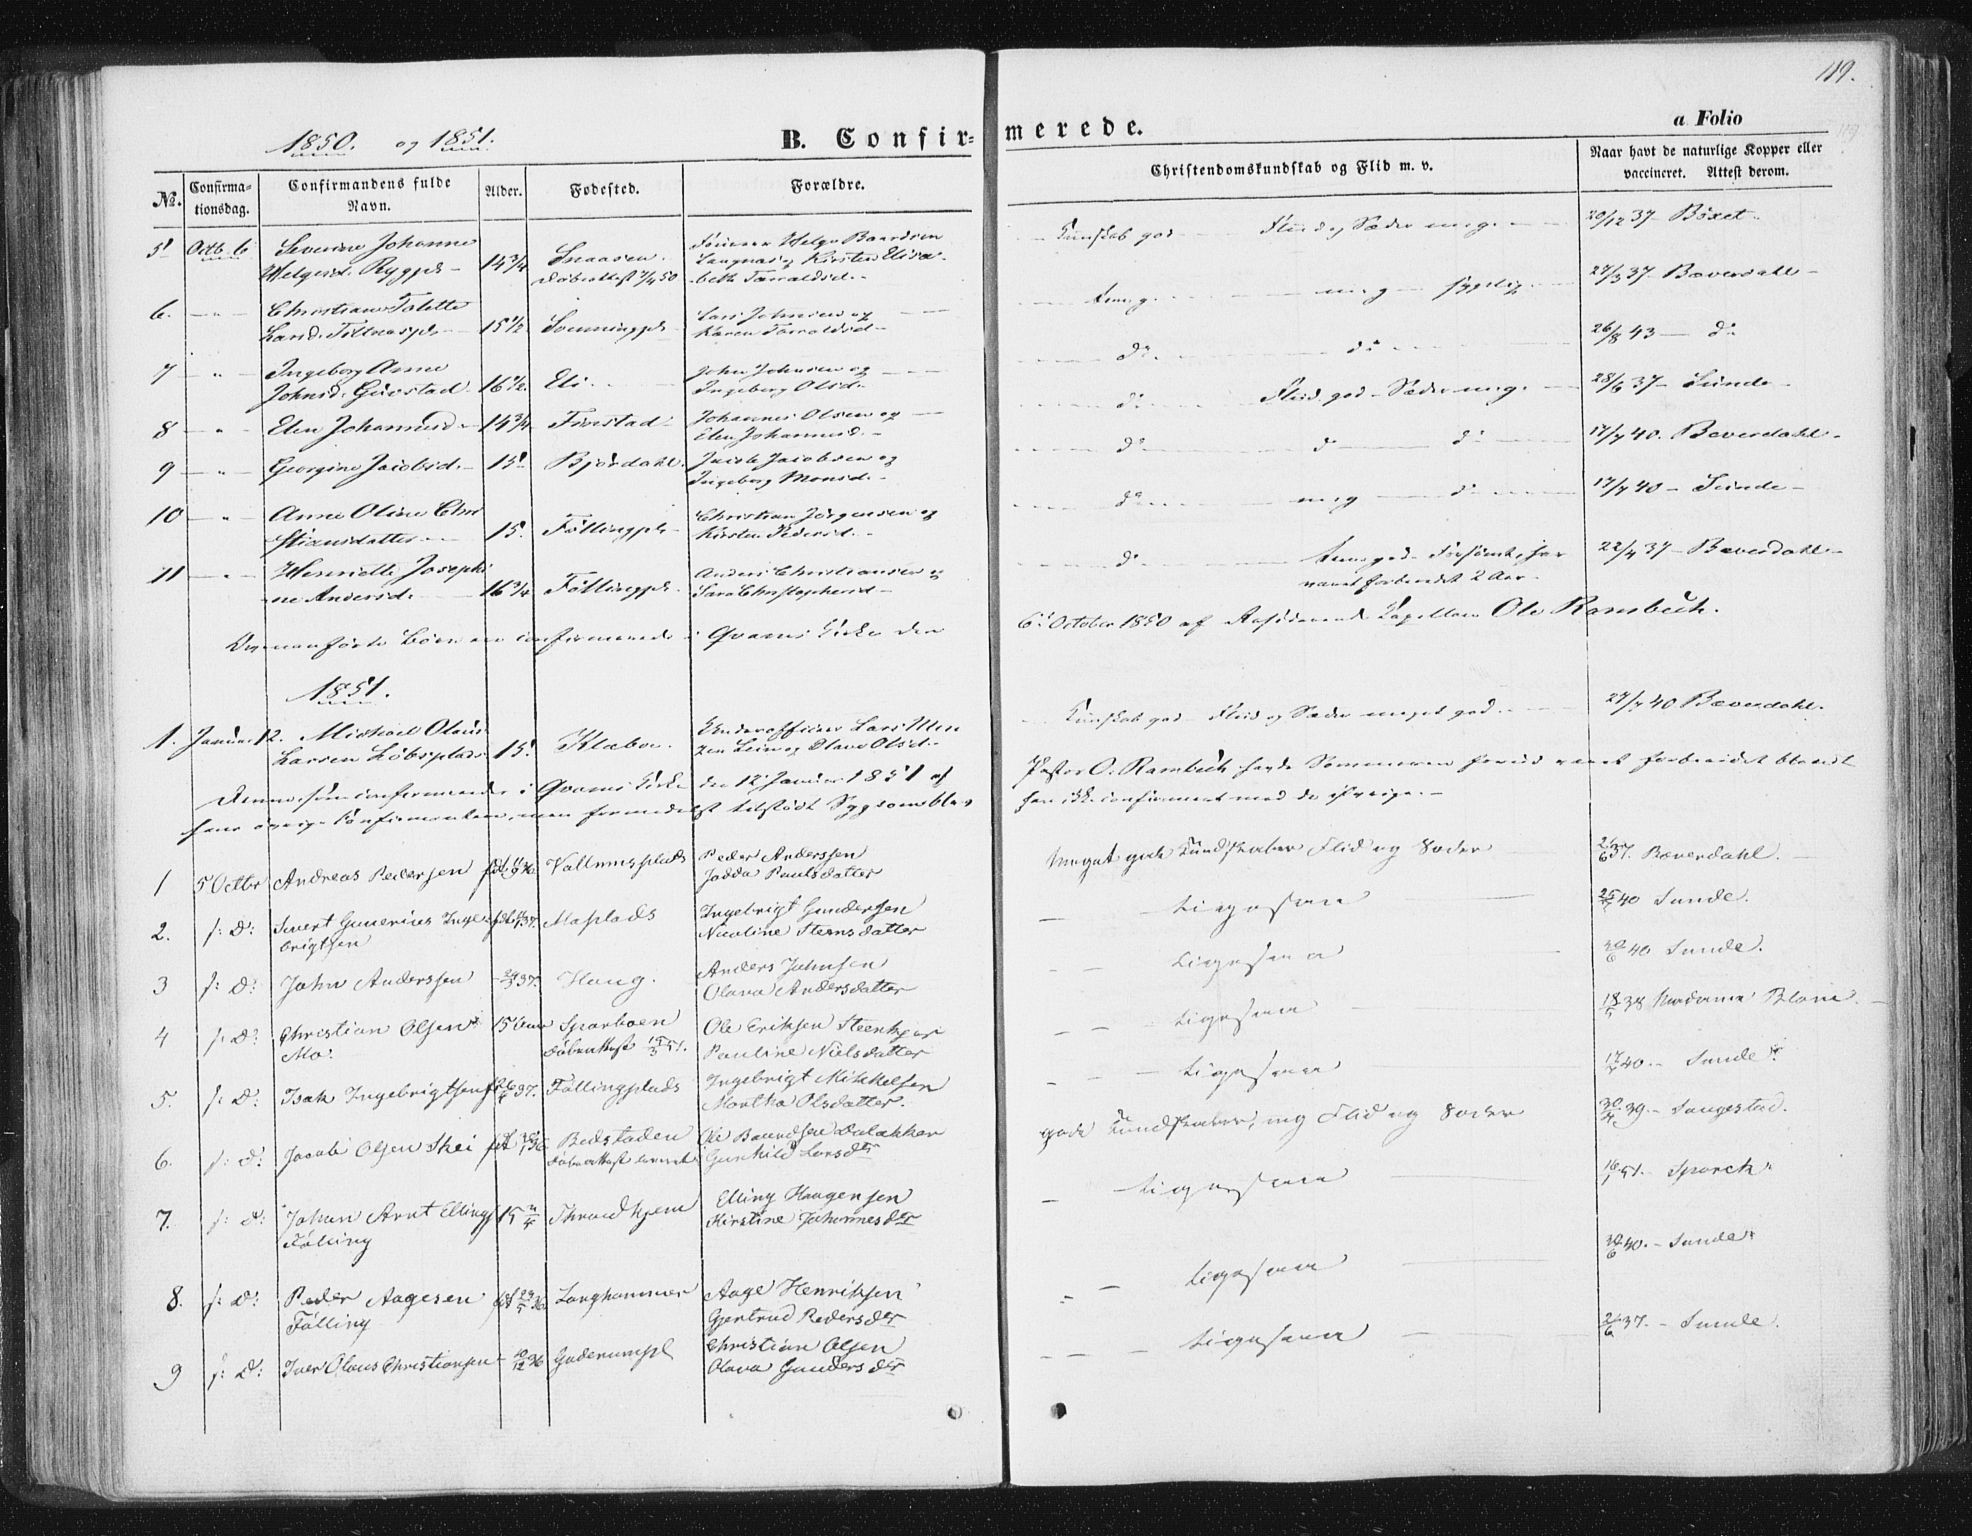 119.
1850. og 1851.
B. Confirmerede.
a Folio
No.
Confirmationsdag.
Confirmandens fulde Navn.
Alder.
Fødested.
Forældre.
Christendomskundskab og Flid m. v.
Naar havt de naturlige Kopper eller vaccineret. Attest derom.
5 Octb. 6 Severine Johanne
Helgesd. Rygpl 14 3/4 Snaasen. Døbeattest
Helge Baardsen
og Kirsten Elisabeth
Kundskab god Flid og Sæder meg. 20/12 37 Böxet.
6. Christiane
Larsd. 15 1/2 Lars Johnsen og
Karen
27/3 37 Bæverdahl
7 Ingeborg Anna
Johnsd. Guvstad 16 1/2 Eli John Johnsen og
Ingeborg Olsd.
do do 26/8 43 do
8 Elen Johannesd. 14 3/4 Finstad Johannes Olsen og
Elen Johannesd.
do Flid god Sæder meg. 28/6 37 Sunde
9 Georgine Jacobsd. 15 Bjørdahl. Jacob Jacobsen og
Ingeborg Monsd.
do do do 17/7 40. Beverdahl.
10 Anne Oline Chri
stiansdatter 15. Føllingpl Christian Jørgensen og
Kirsten Pedersd.
do meg do 17/7 40 Sunde
11 Henriette Josephi
ne Andersd. 16 3/4 Føllingpl. Anders Christiansen og
Sara Christophersd
do 2 Aar. 22/4 37 Bæverdahl
Ovenanførte Børn ere confirmerede i Qvams Kirke den
6. October 1850 af Residerende Kapellan Ole Rambech.
1851.
1. Januar 12. Michael Olaus
Larsen Løbsplads 15. Klæbo. Underofficier Lars
og Olava Olsd.
Kundskab god Flid og Sæder meget god. 27/7 40 Bæverdahl.
Denne confirmerede i Qvams Kirke den 12 Januar 1851 af
Pastor O. Rambech havde Sommeren forud været forberedet blandt
hans øvrige Confirmander, men formedelst tilstødt Sygdom blev
han ikke confirmeret med de øvrige.
1 5 Octbr Andreas Pedersen Vallumsplads Peder Anderssen
Jadda Paulsdatter
Meget gode Kundskaber Flid og Sæder 37. Bæverdahl.
2. s: D: Sivert Gunerius Inge
brigtsen 37. Moplads Ingebrigt Gundersen
Nicoline Steensdatter
Ligesaa 40 Sunde.
3 s: D: John Anderssen 37. Haug. Anders Johnsen
Olava Andersdatter
Ligesaa 40 Sunde.
4 s: D: Christian Olsen
Mo. 15 Sparboen
Døbeattest Ole Eriksen Steenkjær
Pauline Nielsdatter
Ligesaa 18/ 38
5. s: D: Isak Ingebrigtsen 37. Føllingplads Ingebrigt Mikkelsen
Martha Olsdatter.
Ligesaa 17/ 40. Sunde
6. s: D: Jacob Olsen Skei 36 Bedstaden
Døbeattest leveret Ole Baardsen Dalakker
Gunhild Larsdtr
gode Kundskaber, meg Flid og Sæder 39. Sangestad.
7. s: D: Johan Arnt Ellings
Følling 15 Throndhjem Elling Haugensen
Kirstine Johannesdtr
Ligesaa 51. Sparch.
8. s: D: Peder Aagesen
Følling 36. Langhammer Aage Henriksen
Gjertrud Pedersdtr
Ligesaa 40. Sunde
9 s: D: Iver Olaus Christiansen 36 Christian Olsen
Olava Gundersdtr
Ligesaa 37. Sunde.